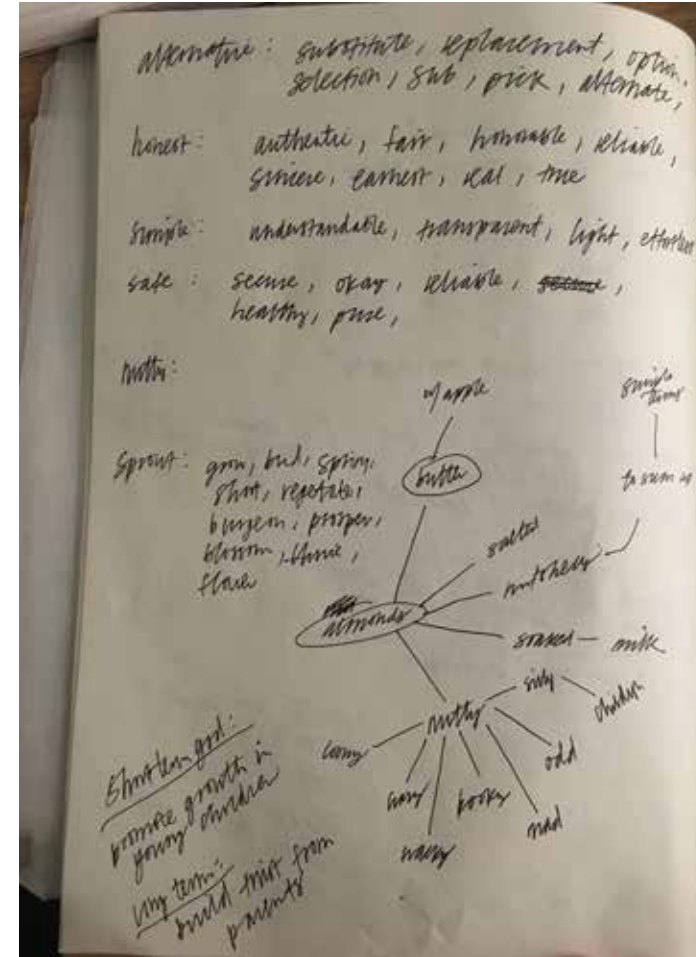 alternative: substitute, replacement, option,
selection, sub, pick, alternate,
honest: authentic, fair, honorable, reliable,
sincere, earnest, real, true
simple: understandable, transparent, light, effortless
safe: secure, okay, reliable, secure,
healthy, pure,
nutty:
sprout: grow, bud, spring,
shoot, vegetate,
burgeon, prosper,
blossom, thrive,
flower
w/ apple
butter
simple
terms
to sum up
salted
nutshell
almonds
soaked — milk
nutty
silly
children
loony
crazy
wacky
kooky
mad
odd
Short term goal:
promote growth in
young children
Long term:
build trust from
parents